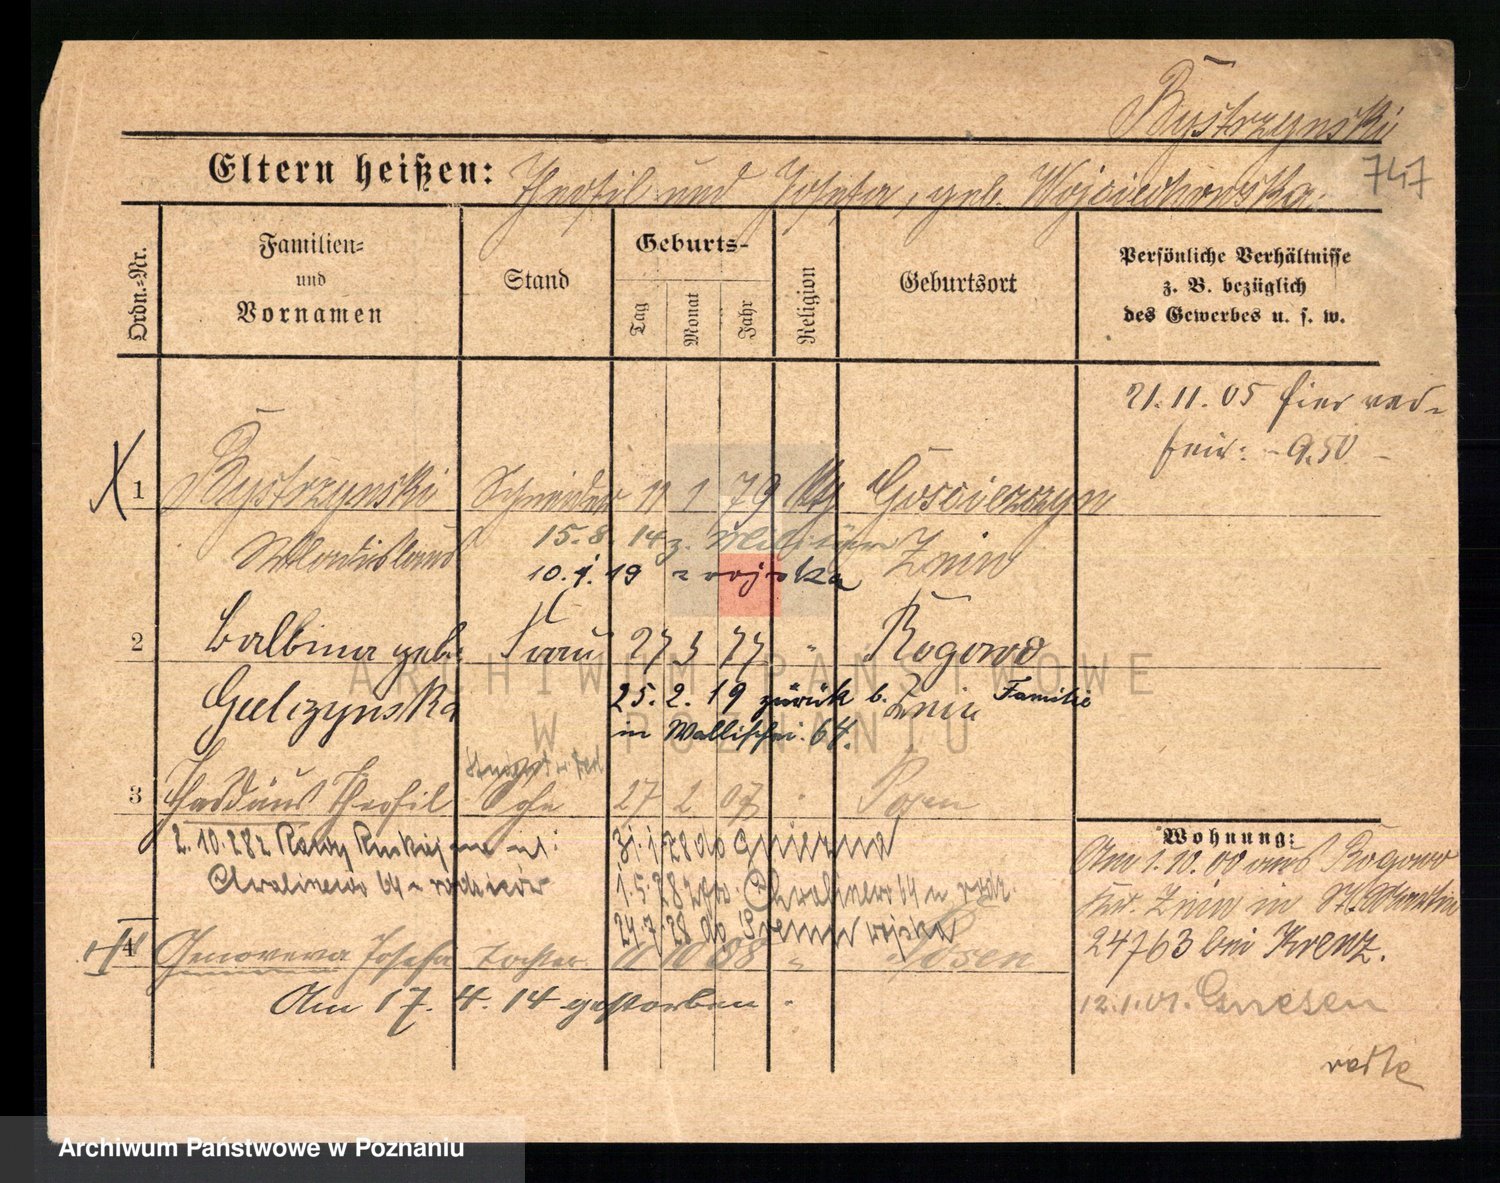 Bystrzynski
747
Eltern heißen: Theofil und Josefa, geb. Wojciechowska.
Ordn.-Nr.
Familien-
und
Vornamen
Stand
Geburts-
Tag
Monat
Jahr
Religion
Geburtsort
Persönliche Verhältnisse
z. B. bezüglich
des Gewerbes u. s. w.
21.11.05
9.50
1 Bystrzynski Schneider 11 1 79 Kth Gościeszyn
Wladislaus 15.8.14 z. Militär Znin
10.1.19 z wojska
2 Balbina geb. Frau 27 3 77 " Rogowo
Gulczynska 25.2.19 zurück b. Familie Znin
in Wallischei 64.
3 Thaddäus Theofil Sohn 27 2 07 " Posen
2.10.28 z
31.1.28 do Gniezna
Chwaliszewo 64 u rodziców
1.5.28 Chwaliszewo 64 u rodz.
24.7.28 do wojska
4 Genoveva Josefa Tochter 11 10 08 " Posen
Am 17.4.14 gestorben.
Wohnung:
Am 1.10.00 aus Rogowo
Kr. Znin in St. Martin
24763 bei Krenz.
12.1.01. Gnesen
ARCHIWUM PAŃSTWOWE
W POZNANIU
Archiwum Państwowe w Poznaniu